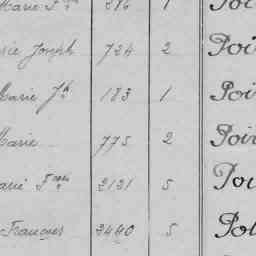 Marie 286 1 Poi
Marie Joseph 724 2 Poi
Marie Jh 183 1 Poi
Marie 775 2 Poir
Marie Fçois 2131 5 Poi
François 2440 5 Pol